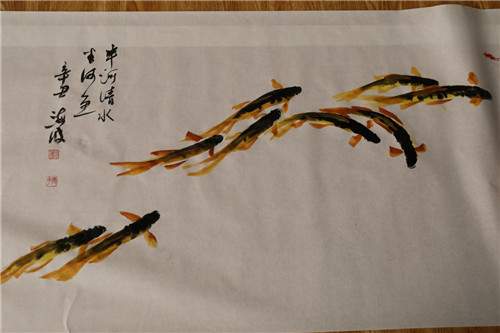 半河清水
半河鱼
辛丑 海波